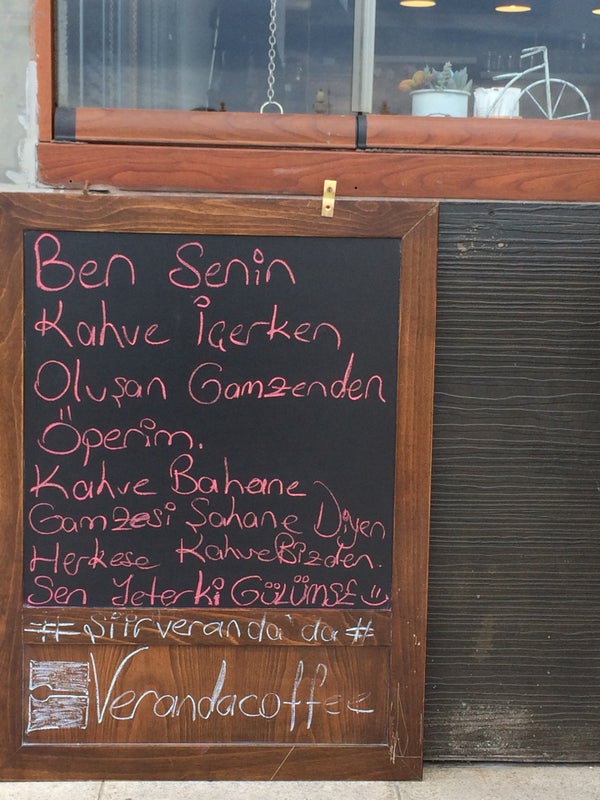 Ben Senin
Kahve İçerken
Oluşan Gamzenden
Öperim.
Kahve Bahane
Gamzesi Şahane Diyen
Herkese Kahve Bizden.
Sen Yeterki GÜLÜMSE
# şiirveranda'da #
Verandacoffee